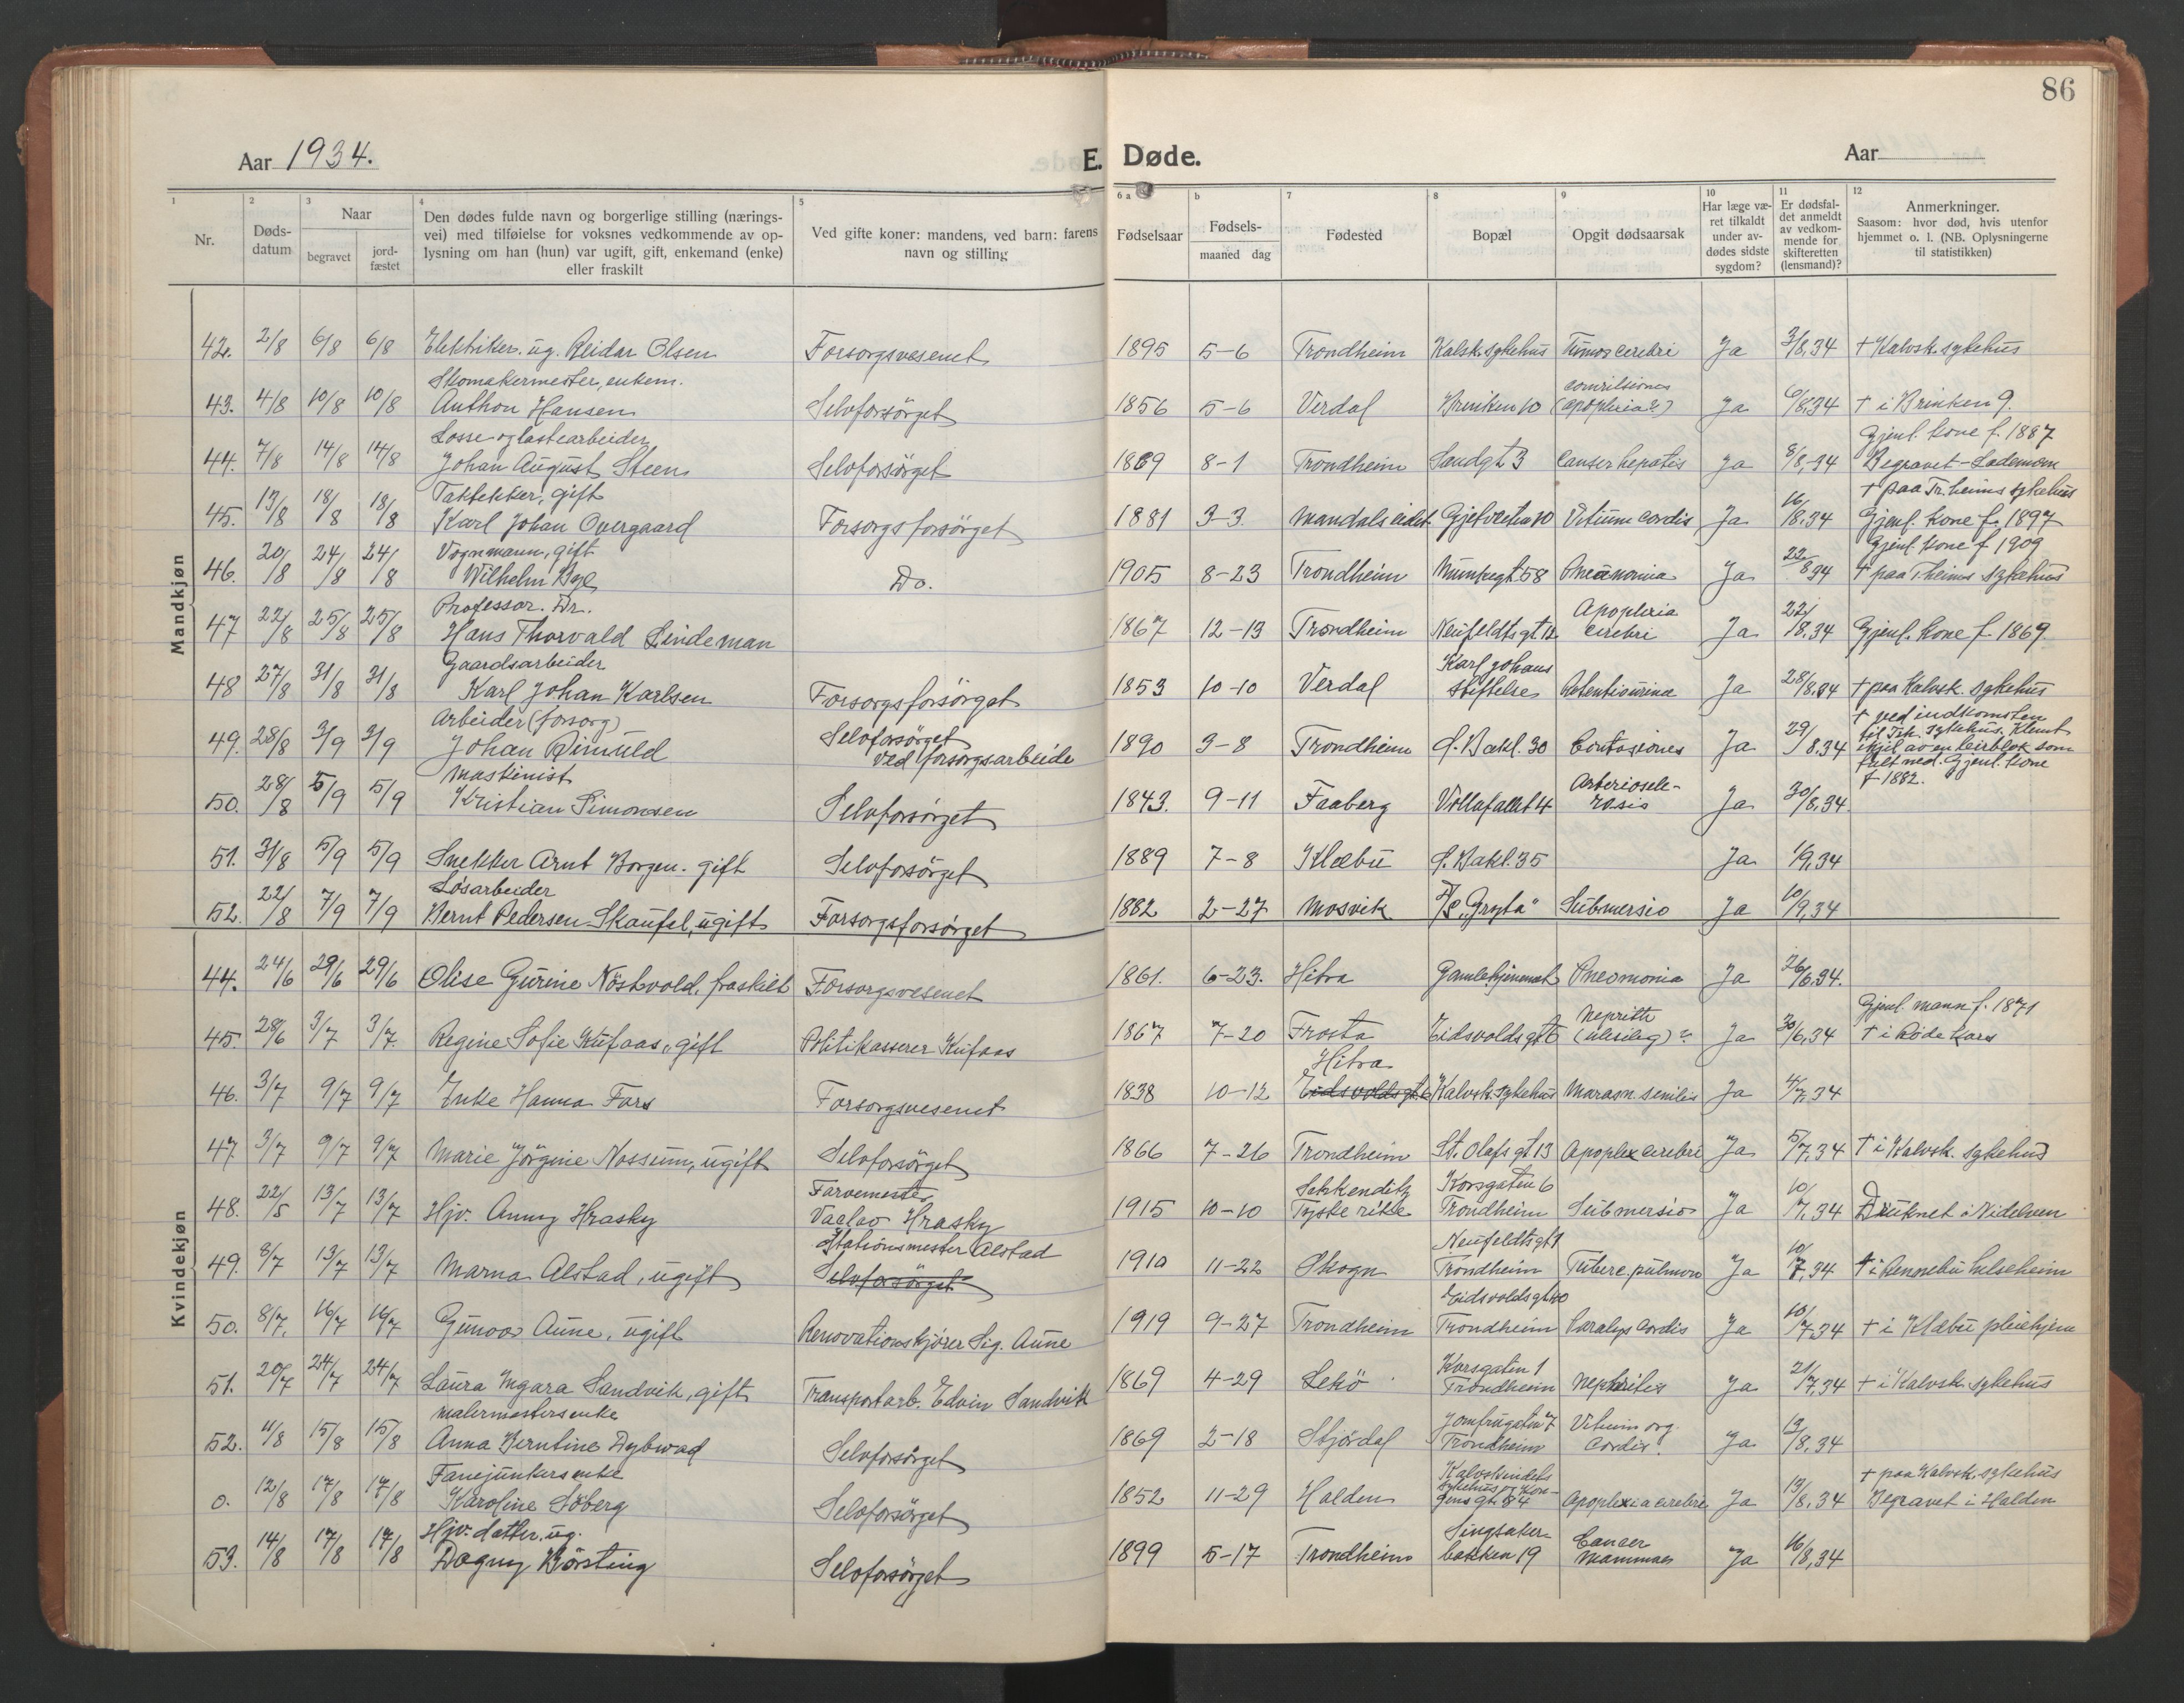 86
Aar 1934.
E. Døde.
Aar
1 2 3 4 5 6 a b 7 8 9 10 11 12
Nr.
Døds-
datum
Naar
begravet
jord-
fæstet
Den dødes fulde navn og borgerlige stilling (nærings-
vei) med tilføielse for voksnes vedkommende av op-
lysning om han (hun) var ugift, gift, enkemand (enke)
eller fraskilt
Ved gifte koner: mandens, ved barn: farens
navn og stilling
Fødselsaar
Fødsels-
maaned dag
Fødested
Bopæl
Opgit dødsaarsak
Har læge væ-
ret tilkaldt
under av-
dødes sidste
sygdom?
Er dødsfal-
det anmeldt
av vedkom-
mende for
skifteretten
(lensmand)?
Anmerkninger.
Saasom: hvor død, hvis utenfor
hjemmet o. l. (NB. Oplysningerne
til statistikken)
Mandkjøn
42. 2/8 6/8 6/8 Elektriker. ug. Reidar Olsen Forsorgsvesenet 1895 5-6 Trondheim Kalsk. sykehus Tumor cerebri Ja 3/8,34 + Kalvsk. sykehus
Skomakermester, enkem.
43. 4/8 10/8 10/8 Anthon Hansen Selvforsörget 1856 5-6 Verdal Brinken 10 (apoplexia?) Ja 6/8,34 + i Brinken 9.
Losse og lastearbeider
Gjenl. kone f. 1887
44. 7/8 14/8 14/8 Johan August Steen Selvforsörget 1869 8-1 Trondheim Sandgt 3 Cancer hepatis Ja 8/8,34 Begravet - Lademoen
Taktekker, gift
+ paa Tr.heims sykehus
45. 13/8 18/8 18/8 Karl Johan Overgaard Forsorgsforsörget 1881 3-3 Mandalseidet Gjetveitun 10 Vitium cordis Ja 16/8.34 Gjenl. kone f. 1897
Vognmann, gift
Gjenl. kone f 1909
46. 20/8 24/8 24/8 Wilhelm Do. 1905 8-23 Trondheim Munkegt 58 Pneumonia Ja 22/8 34 + paa T.heims sykehus
Professor. Dr.
Apoplexia
47 22/8 25/8 25/8 Hans Thorvald Lindeman 1867 12-13 Trondheim Neufeldtsgt 12 cerebri Ja 22/8.34 Gjenl. kone f 1869.
Gaardsarbeider
Karl Johans
48 27/8 31/8 31/8 Karl Johan Karlsen Forsorgsforsörget 1853 10-10 Verdal stiftelse Retentio urina Ja 28/8.34 + paa Kalvsk. sykehus
Arbeider (forsorg)
Selvforsörget
+ ved indkomsten
til Trh. sykehus. Klemt
49. 28/8 3/9 3/9 Johan Rimuld ved forsorgsarbeide 1890 3-8 Trondheim Ö. Bakl. 30 Contusiones Ja 29/8.34 ihjel av en leirblok som
falt ned. Gjenl. kone
Maskinist
Arterioscle-
f 1882.
50. 28/8 5/9 5/9 Kristian Simonsen Selvforsörget 1843. 9-11 Faaberg Vollafallet 4 rosis Ja 30/8.34.
51. 31/8 5/9 5/9 Snekker Arnt Borgen. gift Selvforsörget 1889 7-8 Klæbu Ö. Bakl. 35 Ja 1/9,34
Lösarbeider
52. 22/8 7/9 7/9 Bernt Pedersen Skaufel, ugift Forsorgsforsörget 1882 2-27 Mosvik "Gryta" Submersio Ja 10/9,34
Kvindekjøn
44. 24/6 29/6 29/6 Olise Gurine Nöstvold, fraskilt Forsorgsvesenet 1861. 6-23. Hitra Gamlehjemmet Pneomonia Ja 26/6.34.
Gjenl. mann f. 1871
45. 28/6 3/7 3/7. Regine Sofie Kufaas, gift Politikasserer Kufaas 1867 7-20 Frosta Eidsvoldsgt 6 Ja 30/6,34 + i Röde Kors
Hitra
46. 3/7 9/7 9/7 Enke Hanna Fors Forsorgsvesenet 1838 10-12 Eidsvoldsgt. 6 Kalvsk. sykehus Marasm. senilis Ja 4/7,34
47 3/7 9/7 9/7 Marie Jörgine Nossum, ugift Selvforsörget 1866 7-26 Trondheim St. Olafsgt 13 Apoplex cerebri Ja 5/7,34 + i Kalvsk. sykehus
Farvemester
Korsgaten 6
48. 22/5 13/7 13/7 Hjv. Anny Hrasky Vaclav Hrasky 1915 10-10 Tyske rike Trondheim Submersio Ja 10/7,34 Druknet i Nidelven
Stationsmester Alstad
Neufeldtsgt 1
49. 8/7 13/7 13/7 Marna Alstad, ugift Selvforsörget 1910 11-22 Skogn Trondheim Tuberc. pulmon Ja 10/7,34 + i Rennebu helseheim
Eidsvoldsgt 40
50. 8/7. 16/7 16/7 Gunvor Aune, ugift Renovationskjörer Sig. Aune 1919 9-27 Trondheim Trondheim Paralys cordis Ja 10/7,34 + i Klæbu pleiehjem
Korsgaten 1
51. 20/7 24/7 24/7 Laura Ingara Sandvik, gift Transportarb. Edvin Sandvik 1869 4-29 Lekö Trondheim Nephritis Ja 21/7,34 + i Kalvsk. sykehus
Malermestersenke
Jomfrugaten 7 Vitium org.
52. 11/8 15/8 15/8 Anna Berntine Dybwad Selvforsörget 1869 2-18 Stjördal Trondheim Cordis. Ja 13/8,34
Fanejunkersenke
Kalvskindets
+ paa Kalvsk. sykehus
sykehus og Kon-
0. 12/8 17/8 17/8 Karoline Söberg Selvforsörget 1852 11-29 Halden gensgt. 84 Apoplexia cerebri Ja 13/8,34 Begravet i Halden
Hjv. datter. ug.
Singsaker-
Cancer
53. 14/8 17/8 17/8 Dagny Börsting Selvforsörget 1899 5-17 Trondheim bakken 19 Mammae Ja 16/8,34